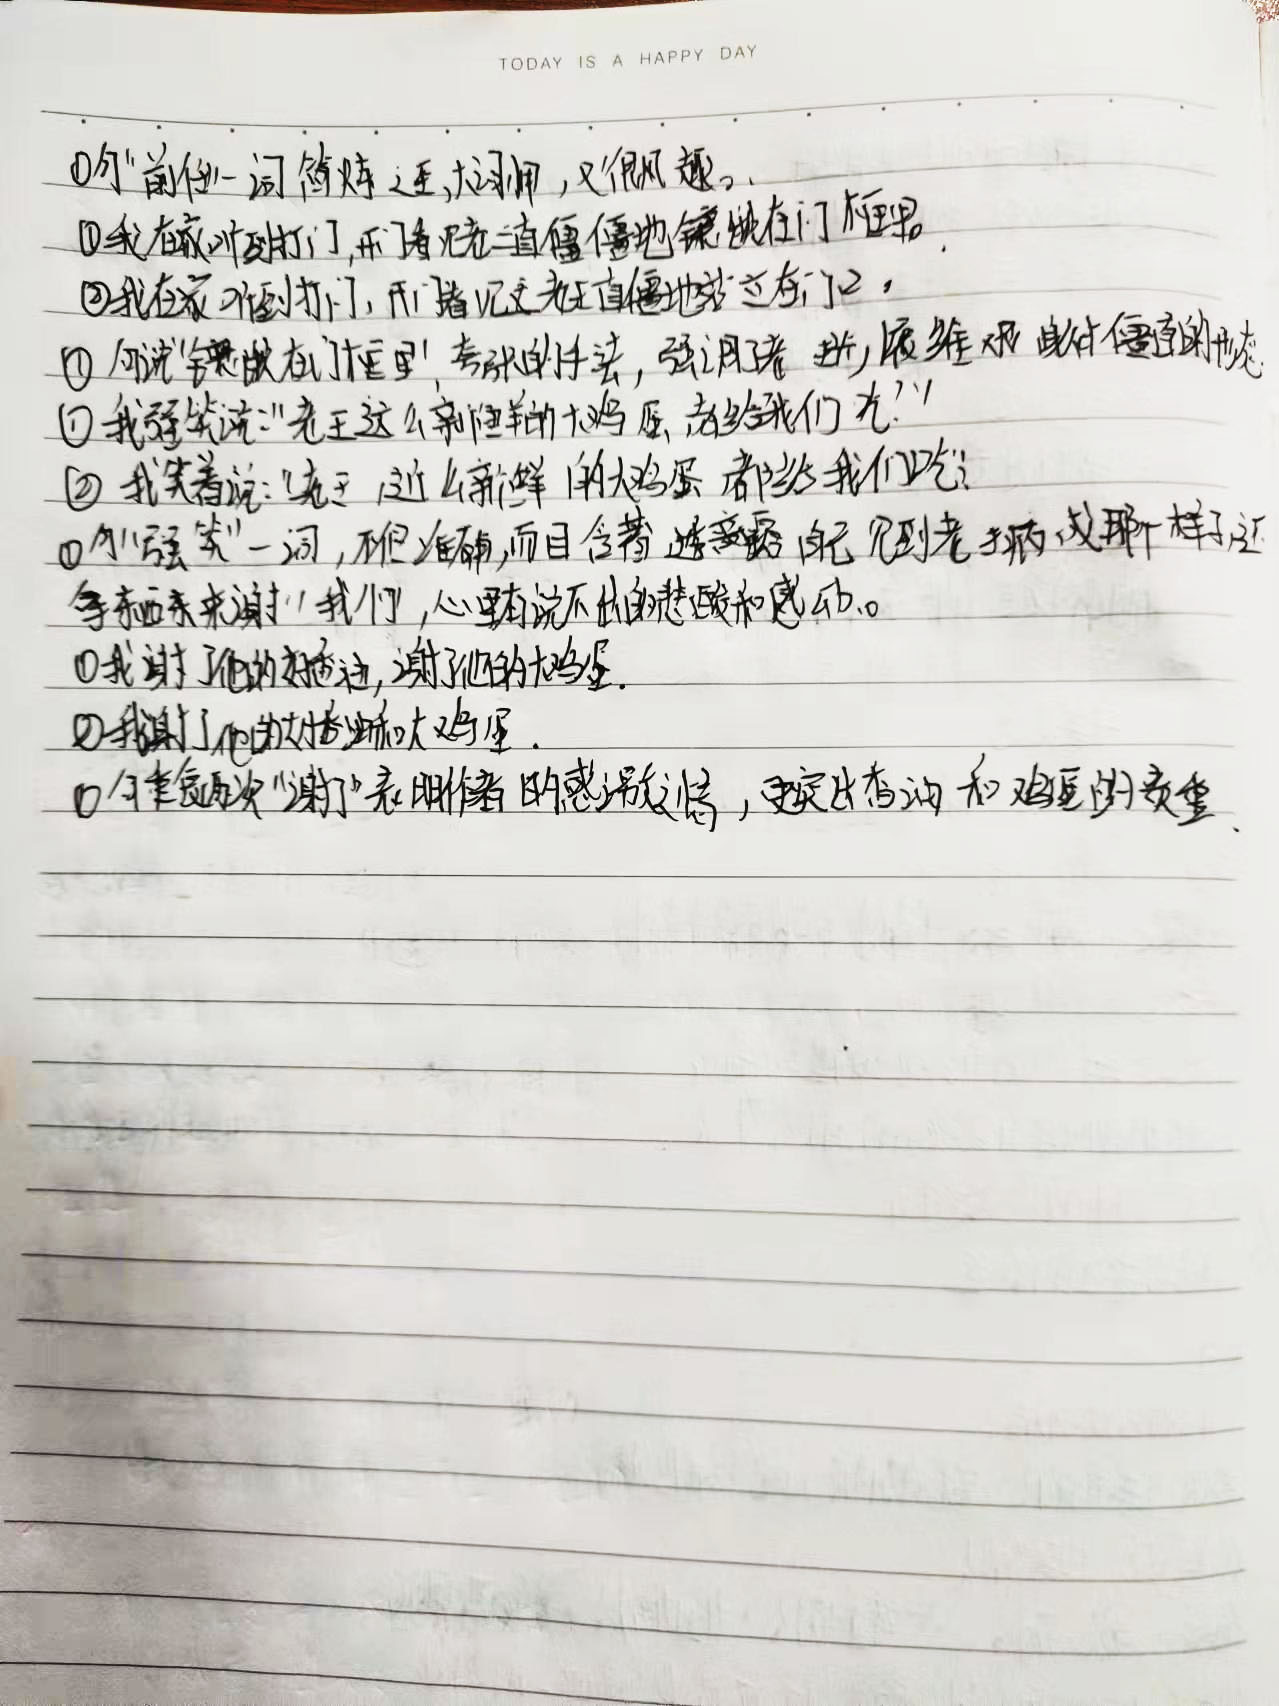 TODAY IS A HAPPY DAY
①句"前任"一词简炼之至,大词 用,又很风趣。
①我在家听到打门,开门看见老王直僵僵地镶嵌在门框里。
②我在家听到打门,开门看见老王直僵地站立在门口。
①句说"镶嵌在门框里",夸张的手法,强调了老 步履维艰 身体僵直的形态
①我强笑说:"老王这么新鲜的大鸡蛋,都给我们吃?"
②我笑着说:"老王,这么新鲜的大鸡蛋都给我们吃?
①句"强笑"一词,不但准确,而且含蓄 透露 自己见到老王病成那个样子,还
拿东西来来谢"我们",心里有说不出的悲酸和感动。
①我谢了他的好香油,谢了他的大鸡蛋.
②我谢了他的好香油和大鸡蛋.
①句重复两次"谢了"表明作者的感激之情,更突出香油和鸡蛋的贵重.